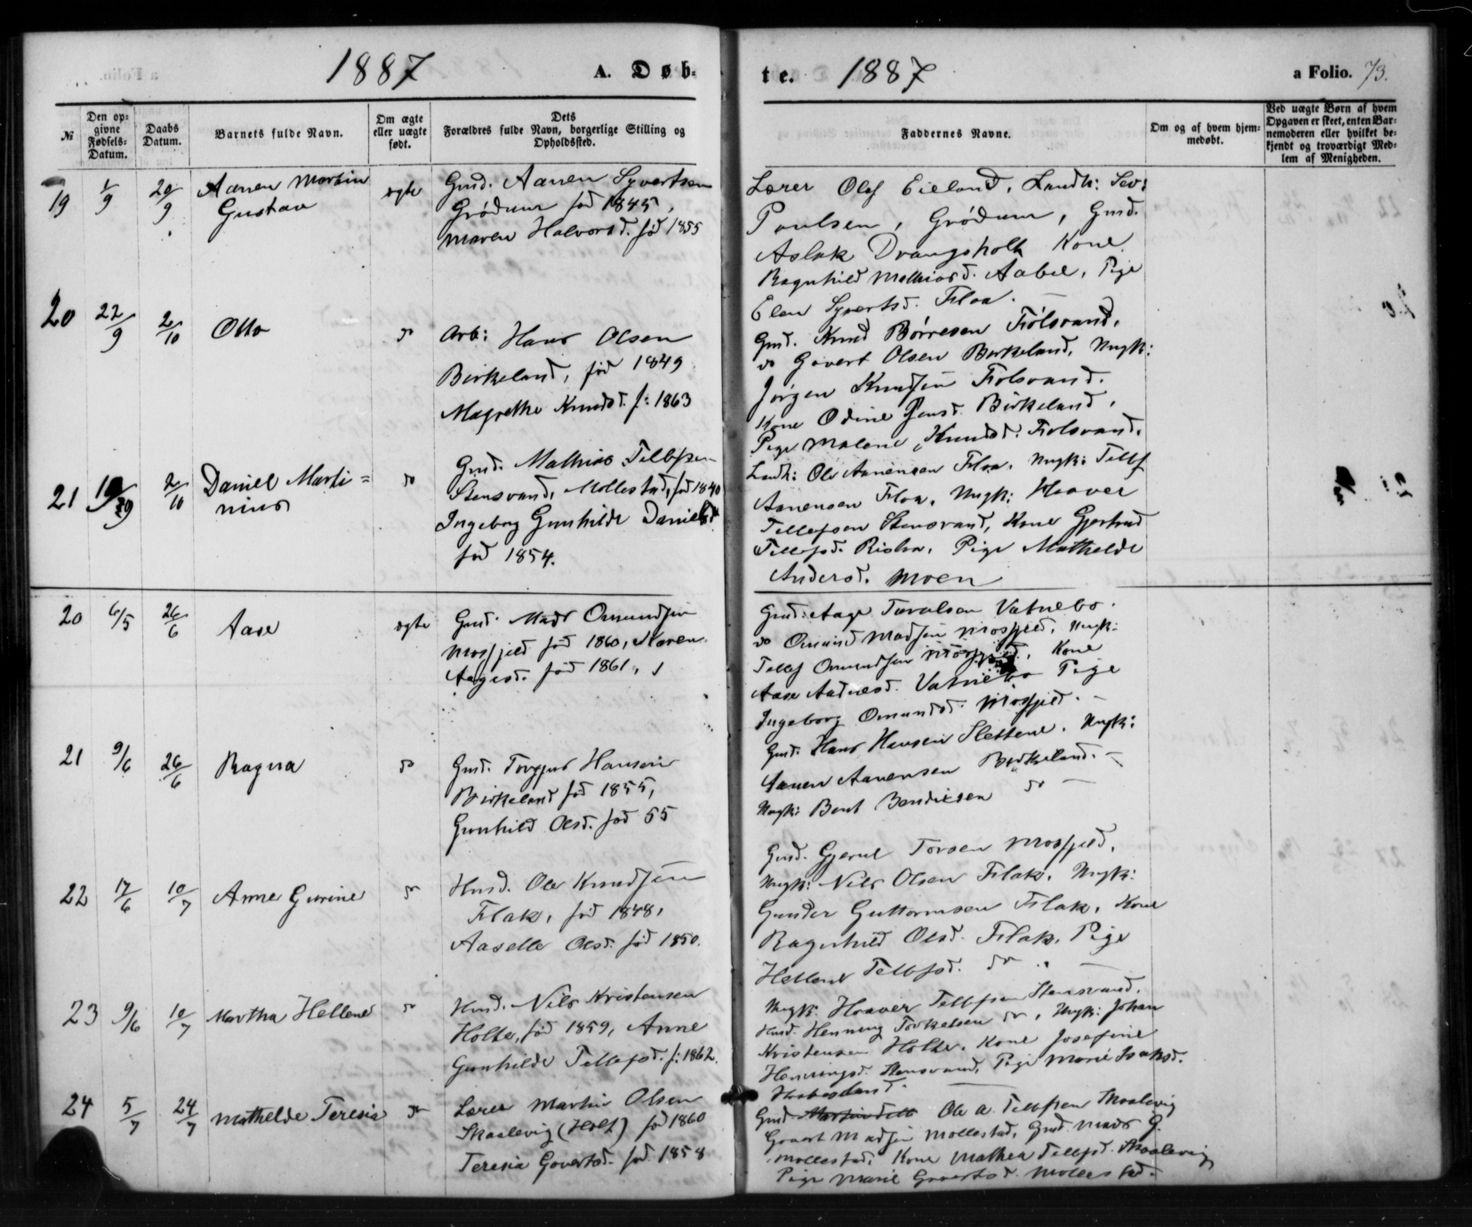 1887 A. Døb-
te. 1887 a Folio. 73.
№ Den op-
givne
Fødsels-
Datum. Daabs
Datum. Barnets fulde Navn. Om ægte
eller uægte
født. Dets
Forældres fulde Navn, borgerlige Stilling og
Opholdssted.
Faddernes Navne. Om og af hvem hjem-
medøbt. Ved uægte Børn af hvem
Opgaven er skeet, enten Bar-
nemoderen eller hvilket be-
kjendt og troværdigt Med-
lem af Menigheden.
19 1/9 20/9 Aanen Martin
Gustav
ægte
Gmd. Aanen Syvertsen
Grødum fød 1845,
Maren Halvorsd. fød 1855
Lærer Olaf Eieland, Landh: Sev:
Poulsen, Grødum, Gmd.
Aslak Drangsholt Kone
Ragnhild Mathiasd. Aabel, Pige
Elen Syvertsd. Floa.
20 22/9 2/10 Otto do
Arb: Hans Olsen
Birkeland, fød 1849
Magrethe Knudsd. f: 1863
Gmd. Knud Børresen Fiolsvand,
do Govert Olsen Birkeland, Ungk:
Jørgen Knudsen Fiolsvand.
Kone Odine Jensd. Birkeland,
Pige Malene Knudsd. Fiolsvand.
21 2/10 Daniel Marti=
nius
do
Gmd. Mathias Tellefsen
Stensvand, Mollestad, fød 1840
Ingeborg Gunhilde Danielsd.
fød 1854.
Landh: Ole Aanensen Floa, Ungk: Tellef
Aanensen Floa, Ungk: Haaver
Tellefsen Stensvand, Kone Gjertrud
Tellefsd. Risbra, Pige Mathilde
Andersd. Moen
20 6/5 26/6 Aase ægte
Gmd. Mads Omundsen
Mosfjeld fød 1860, Maren
Aagesd. fød 1861,
Gmd: Aage Tarvalsen Vatnebo.
do Omund Madsen Mosfjeld, Ungk:
Tellef Omundsen Mosfjeld, Kone
Aase Andreasd. Vatnebo Pige
Ingeborg Omundsd. Mosfjeld.
21 9/6 26/6 Ragna do
Gmd. Torgjus Hansen
Birkeland fød 1855,
Gunhild Olsd. fød 55
Gmd. Hans Hansen Slettene, Ungk:
Aanen Aanensen Birkeland.
Ungk: Bent Bendiksen do
22 17/6 10/7 Anne Gurine do
Husd. Ole Knudsen
Flak, fød 1848,
Aaselle Olsd. fød 1850.
Gmd. Gjerul Torsen Mosfjeld,
Ungk: Nils Olsen Flak, Ungk:
Gunder Guttormsen Flak, Kone
Ragnhild Olsd. Flak, Pige
Hellene Tellefsd. do
23 9/6 10/7 Martha Hellene do
Husd. Nils Kristensen
Holte, fød 1859, Anne
Gunhilde Tellefsd. f: 1862.
Ungk: Haaver Tellefsen Stensvand,
Husd. Henning Torkelsen do, Ungk: Johan
Kristensen Holte, Kone Josefine
Henningsd. Stensvand, Pige Marie Isaksd.
24 5/7 24/7 Mathilde Teresia do
Lærer Martin Olsen
Skaalevig (Holt) fød 1860
Teresia Govertsd. fød 1858
Gmd Ole A. Tellefsen Skaalevig
Govert Madsen Mollestad, Gmd Mads G.
Mollestad, Kone Mathea Tellefsd. Skaalevig
Pige Marie Govertsd. Mollestad.